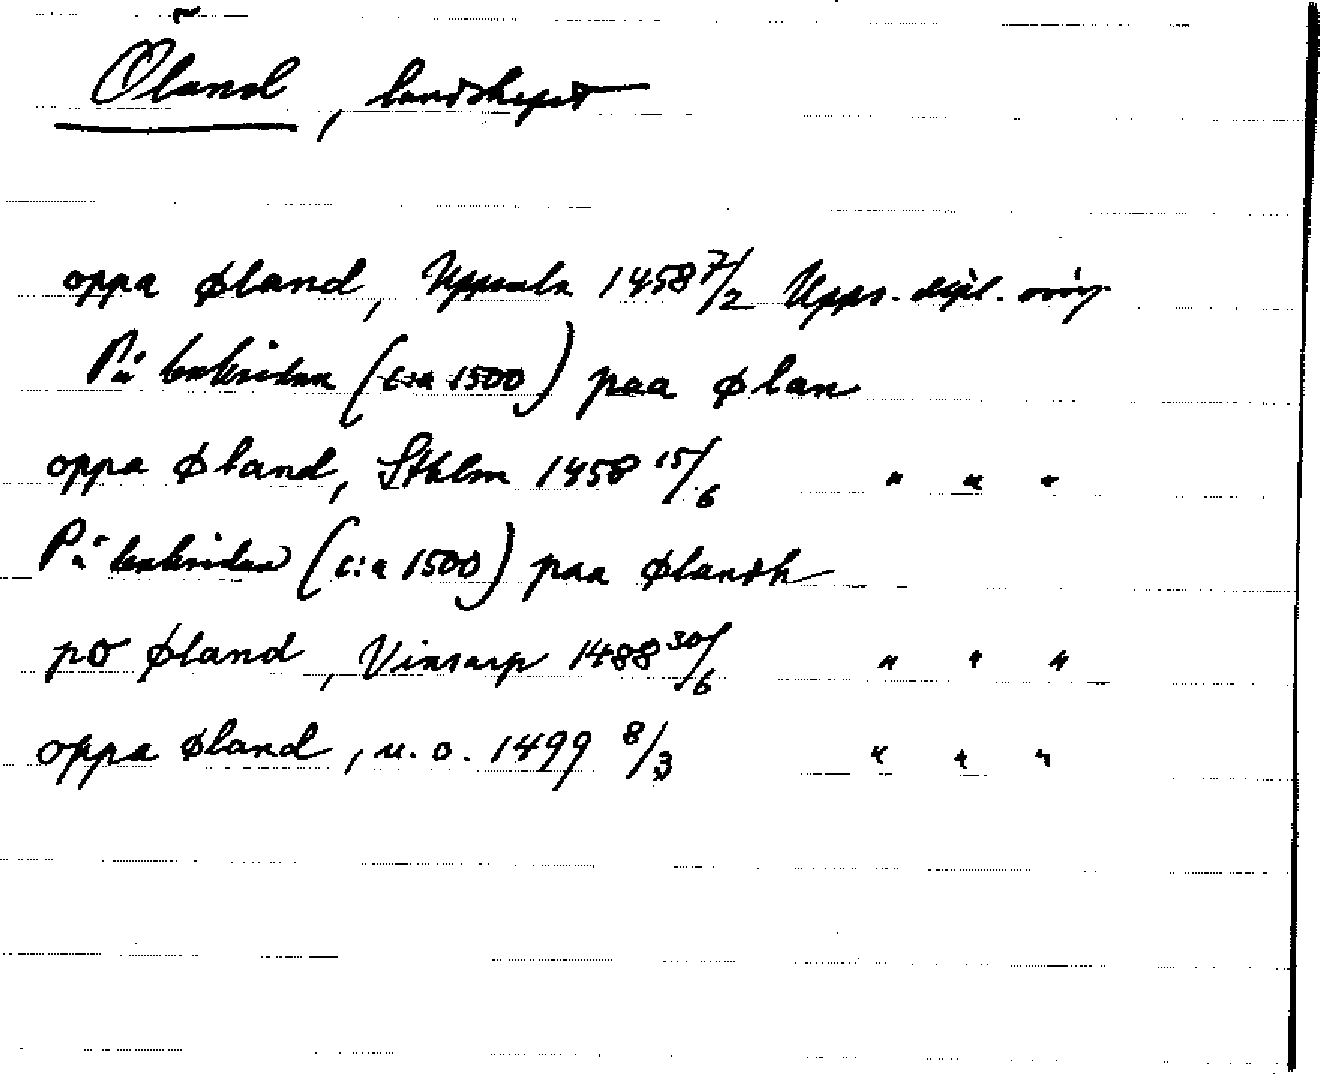 Öland, landskapet
oppa øland, Uppsala 1458 7/2 Upps. dipl. orig
På baksidan (c:a 1500) paa ølan
oppa øland, Sthlm 1458 15/6 " " "
På baksidan (c:a 1500) paa ølandh
po øland, Vinsarp 1488 30/6 " " "
oppa øland, u. o. 1499 8/3 " " "